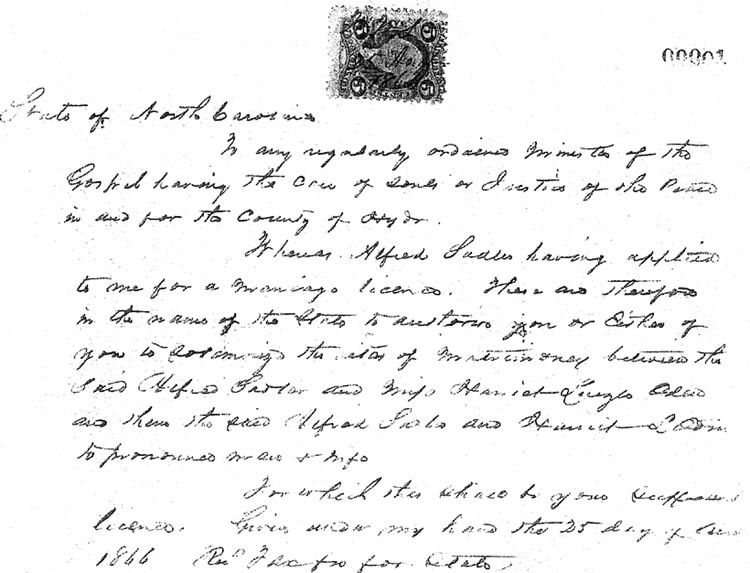 5 5
186
5 5
00001
State of North Carolina
To any regularly ordained Minister of the
Gospel having the Cure of Souls or Justice of the Peace
in and for the County of Hyde.
Whereas Alfred Sadler having applied
to me for a Marriage licence. These are therefore
in the name of the State to authorize you or Either of
you to Solemnize the rites of Matrimony between the
Said Alfred Sadler and Miss Harriet
and them the said Alfred Sadler and Harriet L
to pronounce man & wife
For which this shall be your Sufficient
licence. Given under my hand the 25 day of
1866 Tax for State